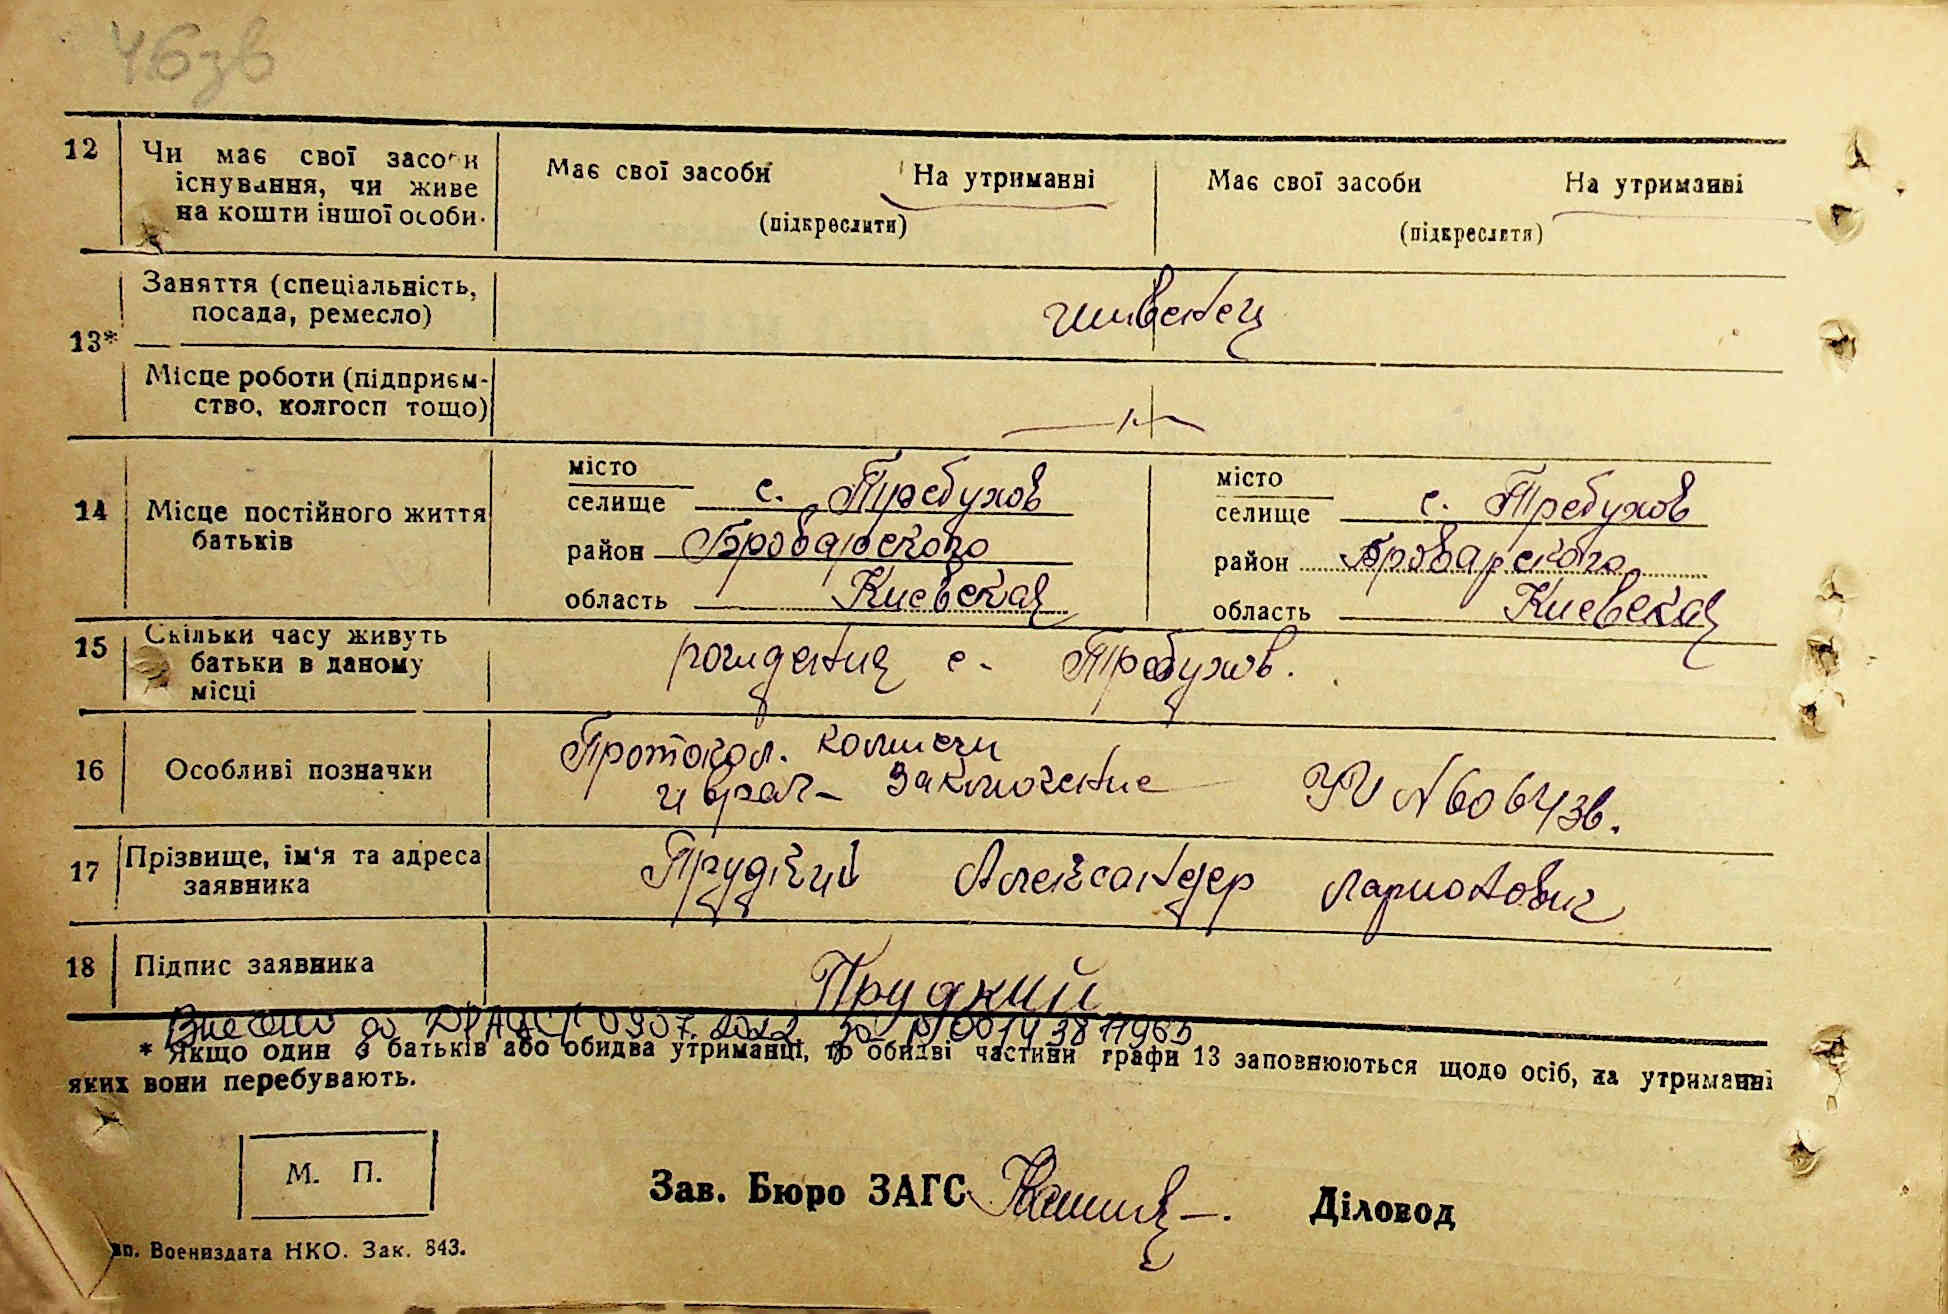 46зв
12 Чи має свої засоби Має свої засоби На утриманні Має свої засоби На утриманні
існування, чи живе
на кошти іншої особи. (підкреслити) (підкреслити)
Заняття (спеціальність,
посада, ремесло) иждивенец
13*
Місце роботи (підприєм-
ство, колгосп тощо)
місто місто
14 Місце постійного життя селище с. Требухов селище с. Требухов
батьків район Броварского район Броварского
область Киевская область Киевская
15 Скільки часу живуть рождения с. Требухов.
батьки в даному
місці
16 Особливі позначки Протокол. комисии
и врач- Заключение
17 Прізвище, ім'я та адреса Прудкий Александер Ларионович
заявника
18 Підпис заявника Прудкий
Внесено до ДРАЦСГ 0907.2022 за №
* Якщо один з батьків або обидва утриманці, то обидві частини графи 13 заповнюються щодо осіб, на утриманні
яких вони перебувають.
М. П.
Зав. Бюро ЗАГС Діловод
Воениздата НКО. Зак. 843.